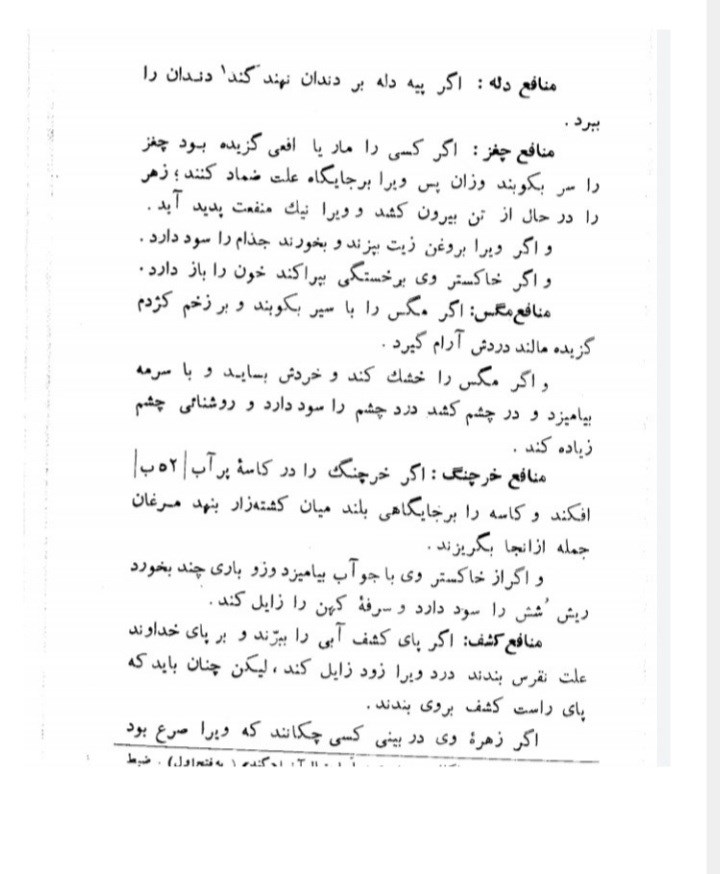 منافع دله : اگر پیه دله بر دندان نهند گند۱ دندان را
ببرد .
منافع چغز : اگر کسی را مار یا افعی گزیده بود چغز
را سر بکوبند وزان پس ویرا برجایگاه علت ضماد کنند ؛ زهر
را در حال از تن بیرون کشد و ویرا نیك منفعت پدید آید .
و اگر ویرا بروغن زیت بپزند و بخورند جذام را سود دارد .
و اگر خاکستر وی برخستگی بپراکند خون را باز دارد .
منافع مگس: اگر مگس را با سیر بکوبند و بر زخم کژدم
گزیده مالند دردش آرام گیرد .
و اگر مگس را خشك کند و خردش بساید و با سرمه
بیامیزد و در چشم کشد درد چشم را سود دارد و روشنائی چشم
زیاده کند .
منافع خرچنگ : اگر خرچنگ را در کاسۀ پر آب |۵۲ ب|
افکند و کاسه را برجایگاهی بلند میان کشته‌زار بنهد مرغان
جمله ازانجا بگریزند .
و اگر از خاکستر وی با جو آب بیامیزد وزو باری چند بخورد
ریش شُش را سود دارد و سرفۀ کهن را زایل کند .
منافع کشف: اگر پای کشف آبی را ببرّند و بر پای خداوند
علت نقرس بندند درد ویرا زود زایل کند ، لیکن چنان باید که
پای راست کشف بروی بندند .
اگر زهرۀ وی در بینی کسی چکانند که ویرا صرع بود
(به فتح اول) . ضبط